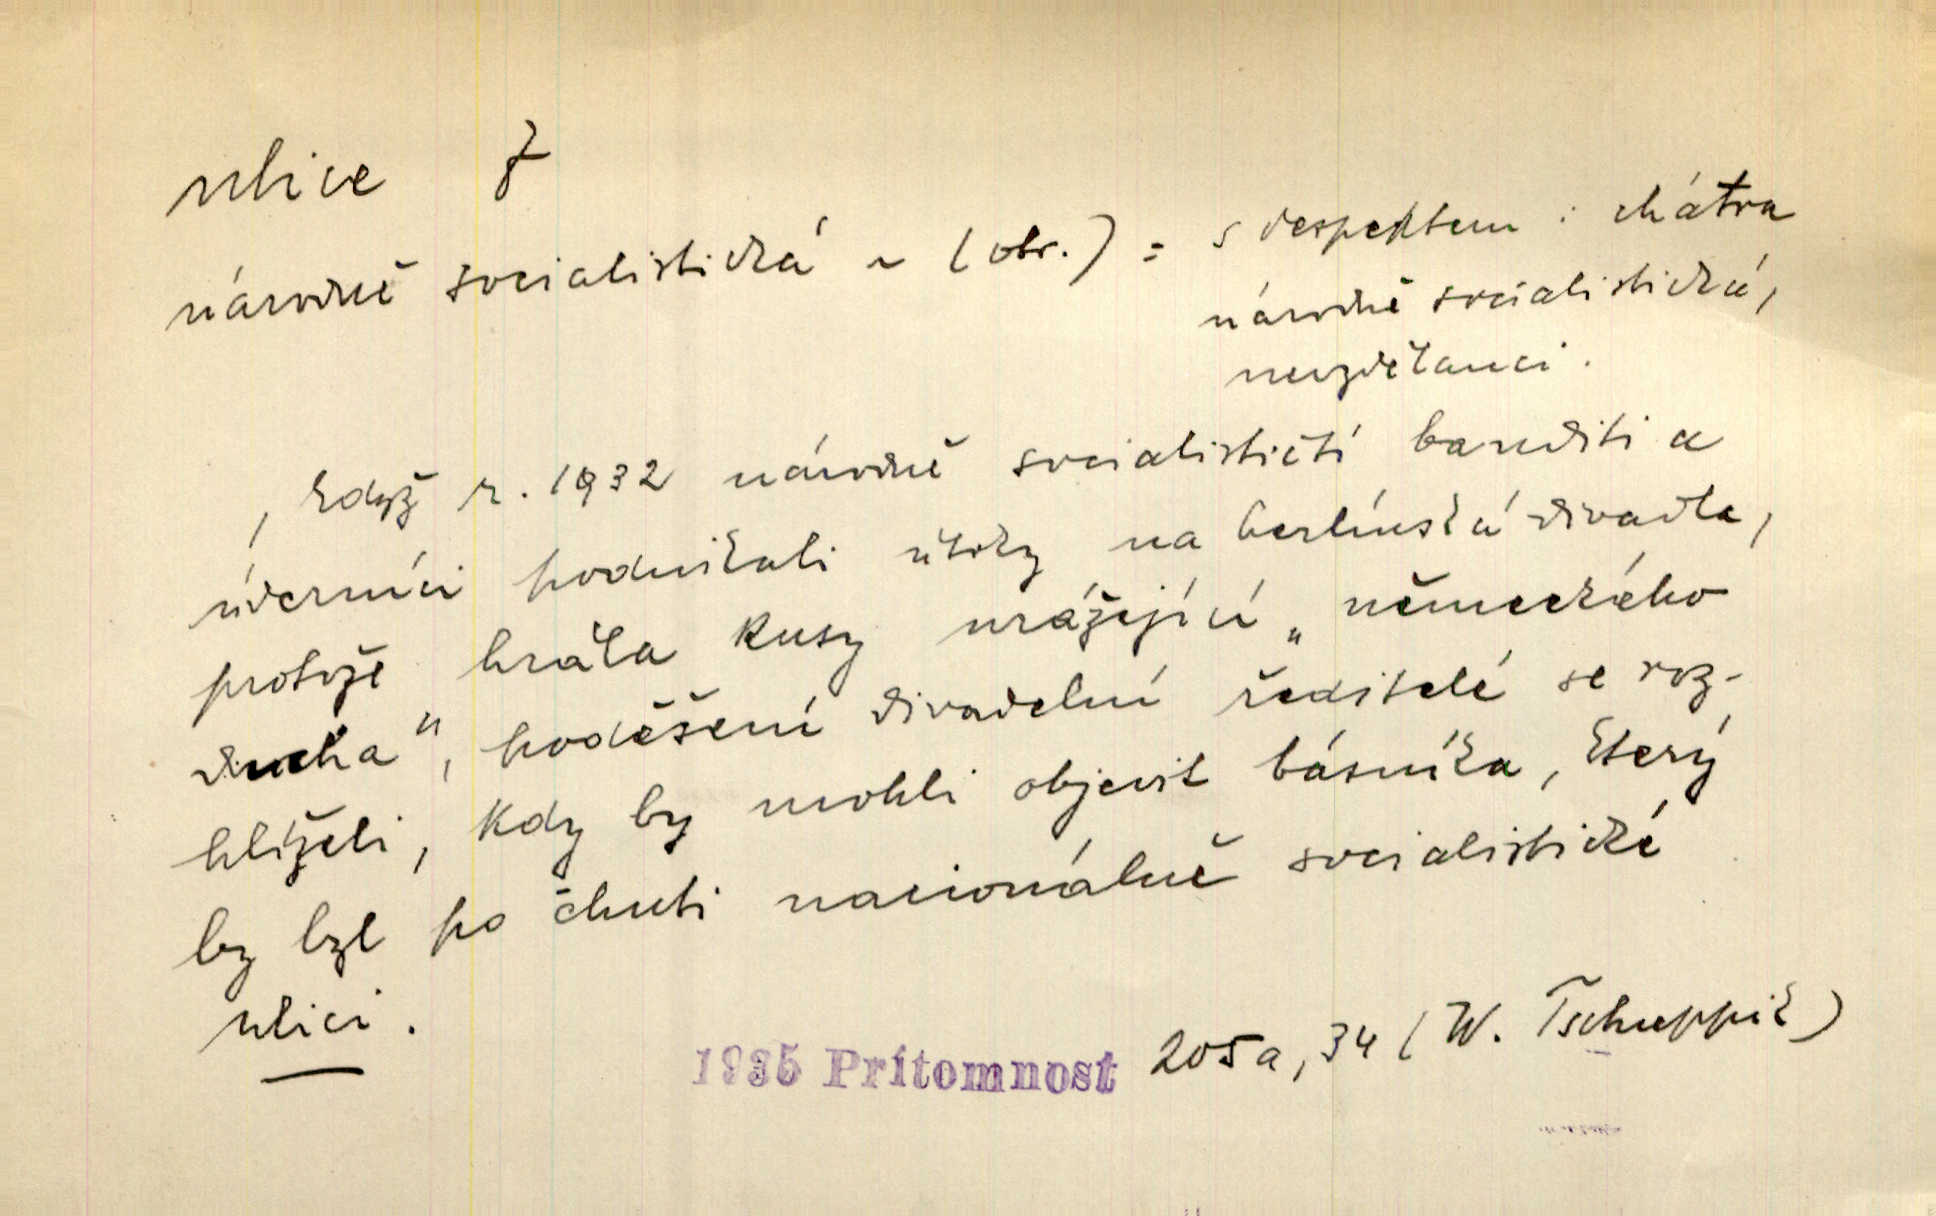 ulice f
národně socialistická ~ (obr.) = s despektem : chátra
národně socialistická,
nevzdělanci.
, když r. 1932 národně socialističtí banditi a
úderníci podnikali útoky na berlínská divadla,
protože hrála kusy urážející „německého
ducha", poděšení divadelní ředitelé se roz-
hlíželi, kdy by mohli objevit básníka, který
by byl po chuti nacionálně socialistické
ulici.
1935 Prítomnost 205a, 34 (W. Tschuppik)